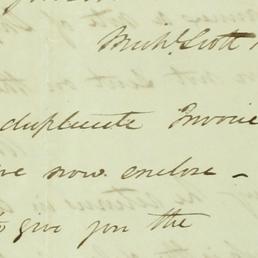 Mich. Scott
duplicate Invoice
we now enclose -
to give you the